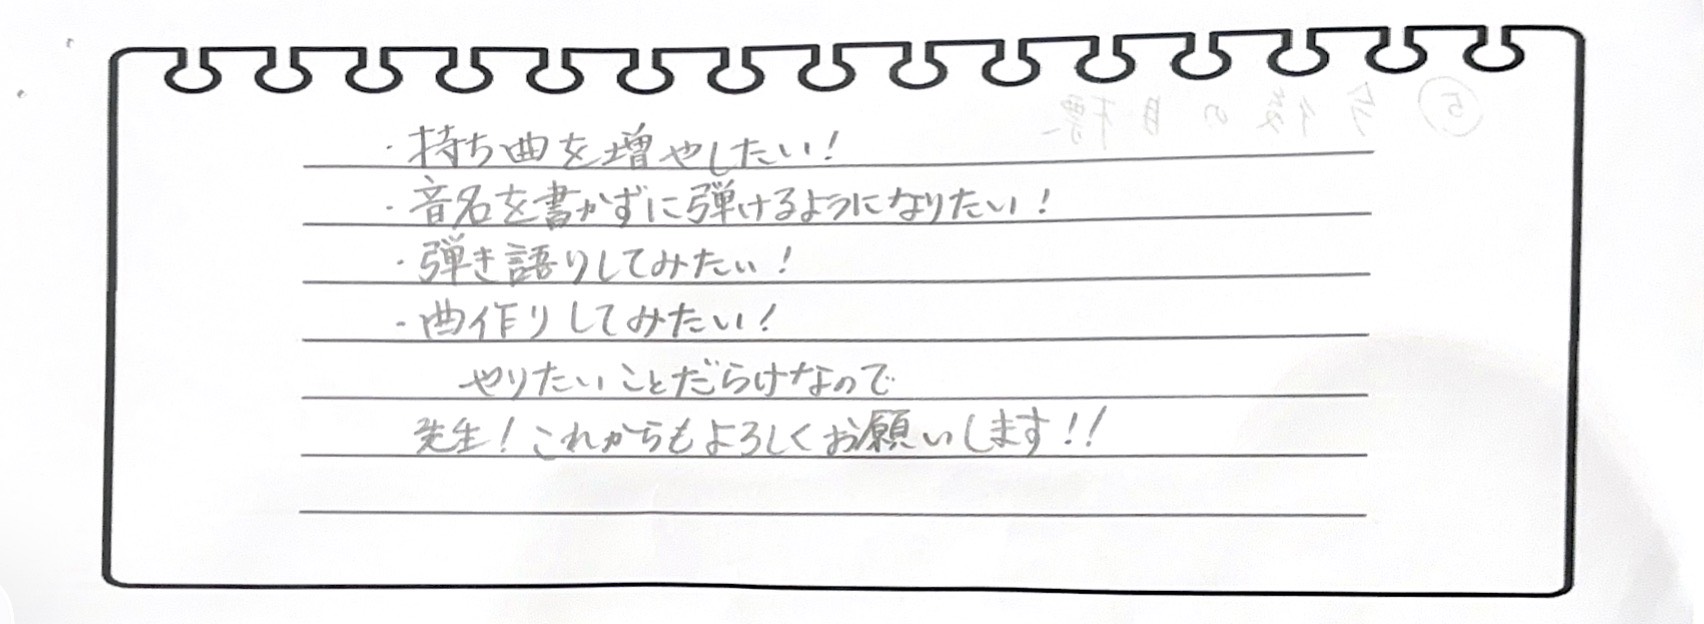 ・持ち曲を増やしたい!
・音名を書かずに弾けるようになりたい!
・弾き語りしてみたい!
・曲作りしてみたい!
やりたいことだらけなので
先生!これからもよろしくお願いします!!
⑤ 今後の目標